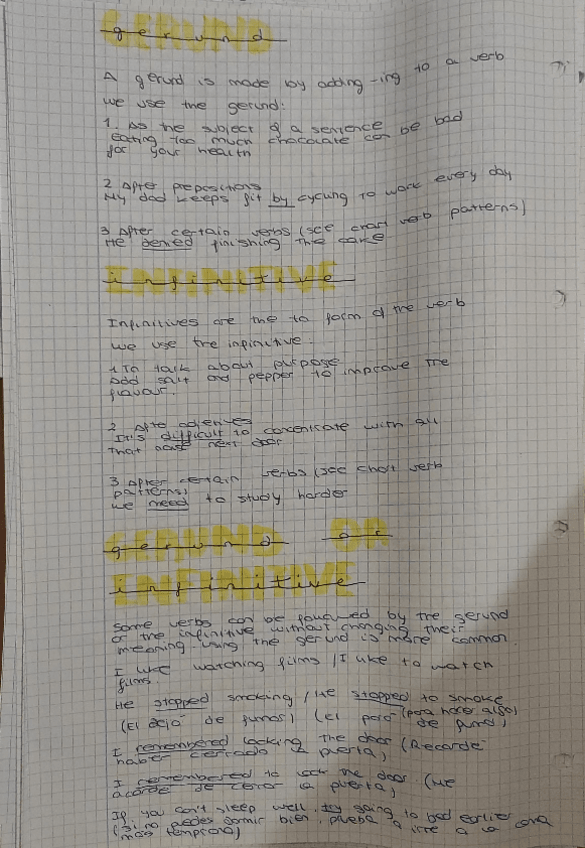 gerund
A gerund is made by adding -ing to a verb
we use the gerund:
1. As the subject of a sentence
eating too much chocolate can be bad
for your health
2 After prepositions
My dad keeps fit by cycling to work every day
3 After certain verbs (see chart verb patterns)
He denied finishing the cake
infinitive
Infinitives are the to form of the verb
we use the infinitive:
1 To talk about purpose
Add salt and pepper to improve the
flavour.
2 After
It's difficult to concentrate with all
that next door
3 After certain verbs (see chart verb
patterns)
we need to study harder
gerund or
infinitive
Some verbs can be followed by the gerund
or the infinitive without changing their
meaning. Using the gerund is more common
I like watching films / I like to watch
films.
He stopped smoking / He stopped to smoke
(para hacer algo)
(El dejó de fumar) (El paró de fumar)
I remembered locking the door (Recordé
haber cerrado la puerta)
I remembered to lock the door. (Me
acordé de cerrar la puerta)
If you can't sleep well, try going to bed earlier
(Si no puedes dormir bien, prueba a irte a la cama
más temprano)